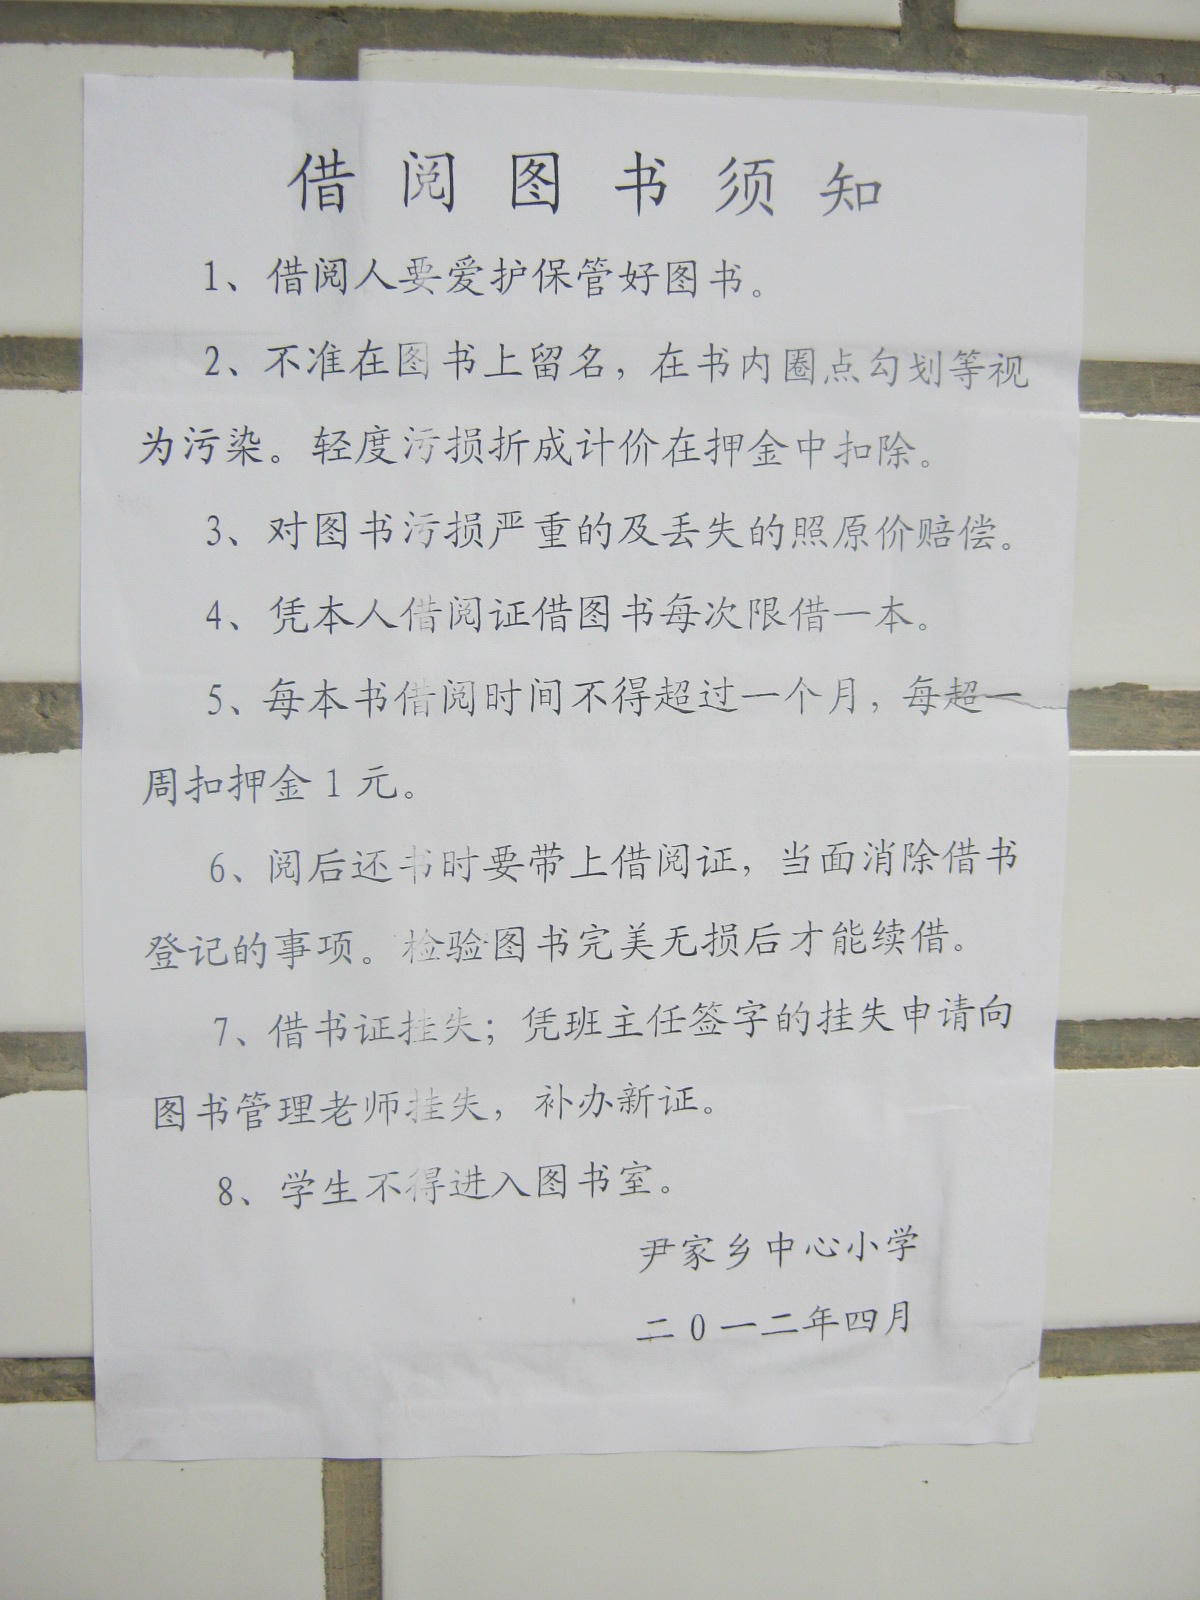 借阅图书须知
1、借阅人要爱护保管好图书。
2、不准在图书上留名，在书内圈点勾划等视
为污染。轻度污损折成计价在押金中扣除。
3、对图书污损严重的及丢失的照原价赔偿。
4、凭本人借阅证借图书每次限借一本。
5、每本书借阅时间不得超过一个月，每超一
周扣押金1元。
6、阅后还书时要带上借阅证，当面消除借书
登记的事项。检验图书完美无损后才能续借。
7、借书证挂失；凭班主任签字的挂失申请向
图书管理老师挂失，补办新证。
8、学生不得进入图书室。
尹家乡中心小学
二0一二年四月